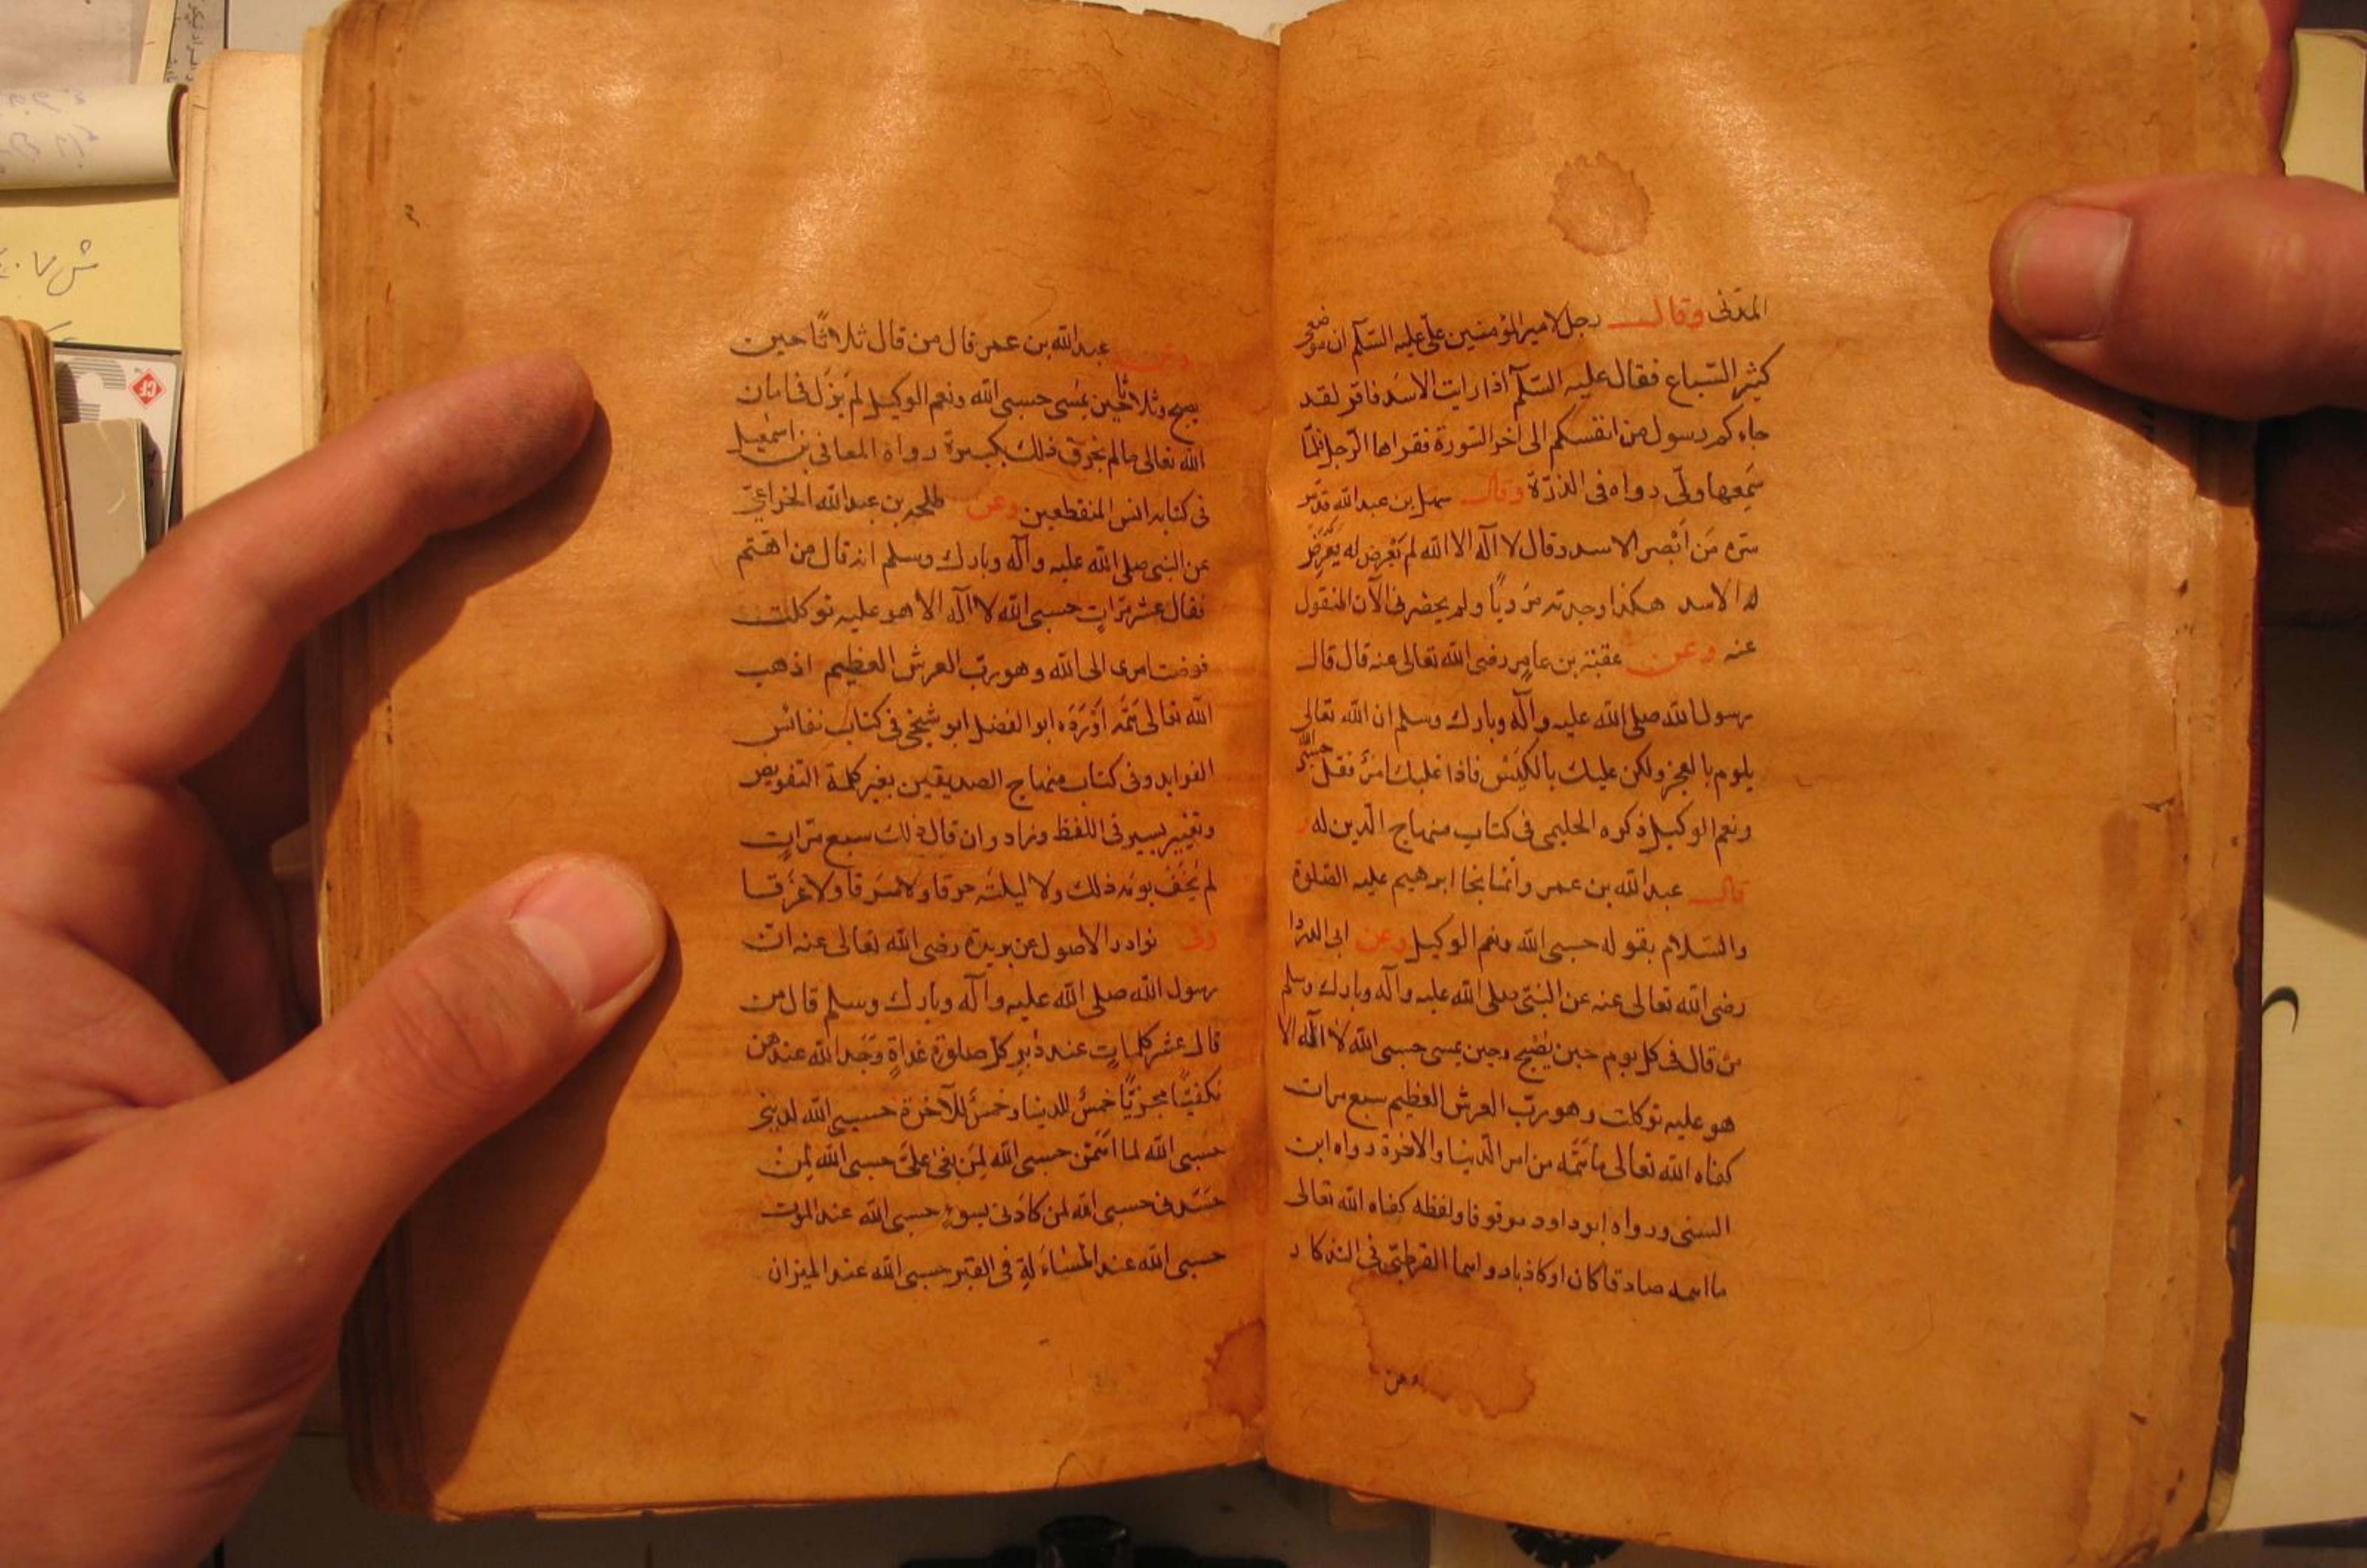 المدنى وقال رجل لامير المؤمنين على عليه السلم ان موضعى
كثير السباع فقال عليه السلم اذا رايت الاسد فاقر لقد
جاءكم رسول من انفسكم الى اخر السورة فقراها الرجل فلما
سمعها ولى رواه فى الدرة وقال سهل بن عبد الله قدس
سره من ابصر الاسد وقال لا اله الا الله لم يعرض له
له الاسد هكذا وجدته مرويا ولم يحضرنى الآن المنقول
عنه وعن عقبة بن عامر رضى الله تعالى عنه قال قال
رسول الله صلى الله عليه وآله وبارك وسلم ان الله تعالى
يلوم بالعجز ولكن عليك بالكيس فاذا غلبك امر فقل حسبى الله
ونعم الوكيل ذكره الحليمى فى كتاب منهاج الدين له و
قال عبد الله بن عمر وانما نجا ابرهيم عليه الصلوة
والسلام بقوله حسبى الله ونعم الوكيل وعن ابى الدردا
رضى الله تعالى عنه عن النبى صلى الله عليه وآله وبارك وسلم
من قال فى كل يوم حين يصبح وحين يمسى حسبى الله لا اله الا
هو عليه توكلت وهو رب العرش العظيم سبع مرات
كفاه الله تعالى ما همه من امر الدنيا والاخرة رواه ابن
السنى ورواه ابو داود موقوفا ولفظه كفاه الله تعالى
ما اهمه صادقا كان او كاذبا القرطبى فى التذكار
وعن
وعن عبد الله بن عمر قال من قال ثلاثا حين
يصبح وثلاثا حين يمسى حسبى الله ونعم الوكيل لم يزل فى امان
الله تعالى مالم يخرق ذلك بكبيرة رواه المعافى بن اسمعيل
فى كتابه انس المنقطعين وعن طلحه بن عبد الله الخزاعى
عن النبى صلى الله عليه وآله وبارك وسلم انه قال من اهتم
فقال عشر مرات حسبى الله لا اله الا هو عليه توكلت
فوضت امرى الى الله وهو رب العرش العظيم اذهب
الله تعالى همه اورده ابو الفضل ابو شيخى فى كتاب نفائس
الفوايد وفى كتاب منهاج الصديقين بغير كلمة التفويض
وتغيير يسير فى اللفظ وزاد وان قال ذلك سبع مرات
لم يخف يومه ذلك ولا ليلته حرقا ولا سرقا ولا غرقا
وفى نوادر الاصول عن بريدة رضى الله تعالى عنه ان
رسول الله صلى الله عليه وآله وبارك وسلم قال من
قال عشر كلمات عند دبر كل صلوة غداة وجد الله عندهن
مكفيا مجزيا خمس للدنيا وخمس للآخرة حسبى الله لدينى
حسبى الله لما اهمنى حسبى الله لمن بغى على حسبى الله لمن
حسدنى حسبى الله لمن كادنى بسوء حسبى الله عند الموت
حسبى الله عند المساءلة فى القبر حسبى الله عند الميزان